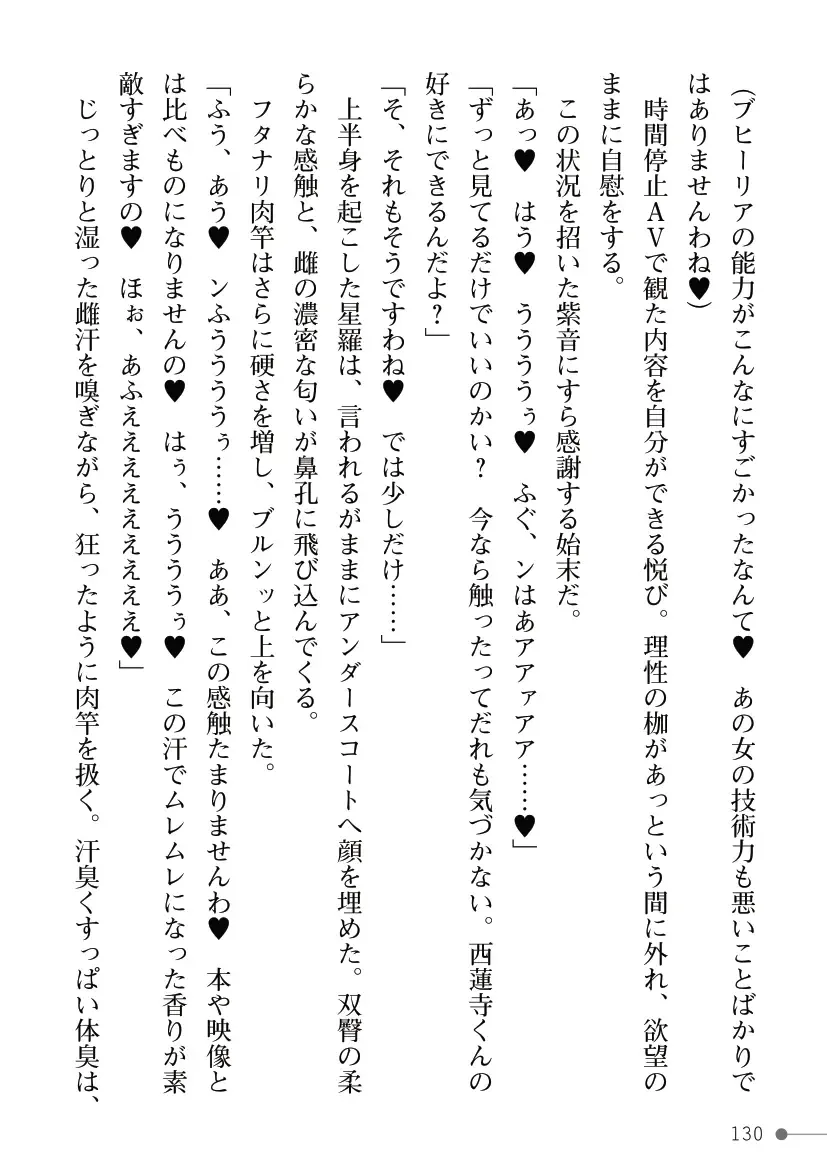 （ブヒーリアの能力がこんなにすごかったなんて♥　あの女の技術力も悪いことばかりで
はありませんわね♥）
　時間停止ＡＶで観た内容を自分ができる悦び。理性の枷があっという間に外れ、欲望の
ままに自慰をする。
　この状況を招いた紫音にすら感謝する始末だ。
「あっ♥　はう♥　うううぅ♥　ふぐ、ンはあアアァアア……♥」
「ずっと見てるだけでいいのかい？　今なら触ったってだれも気づかない。西蓮寺くんの
好きにできるんだよ？」
「そ、それもそうですわね♥　では少しだけ……」
　上半身を起こした星羅は、言われるがままにアンダースコートへ顔を埋めた。双臀の柔
らかな感触と、雌の濃密な匂いが鼻孔に飛び込んでくる。
　フタナリ肉竿はさらに硬さを増し、ブルンッと上を向いた。
「ふう、あう♥　ンふうううぅ……♥　ああ、この感触たまりませんわ♥　本や映像と
は比べものになりませんの♥　はぅ、うううぅ♥　この汗でムレムレになった香りが素
敵すぎますの♥　ほぉ、あふえええええええええ♥」
　じっとりと湿った雌汗を嗅ぎながら、狂ったように肉竿を扱く。汗臭くすっぱい体臭は、
130